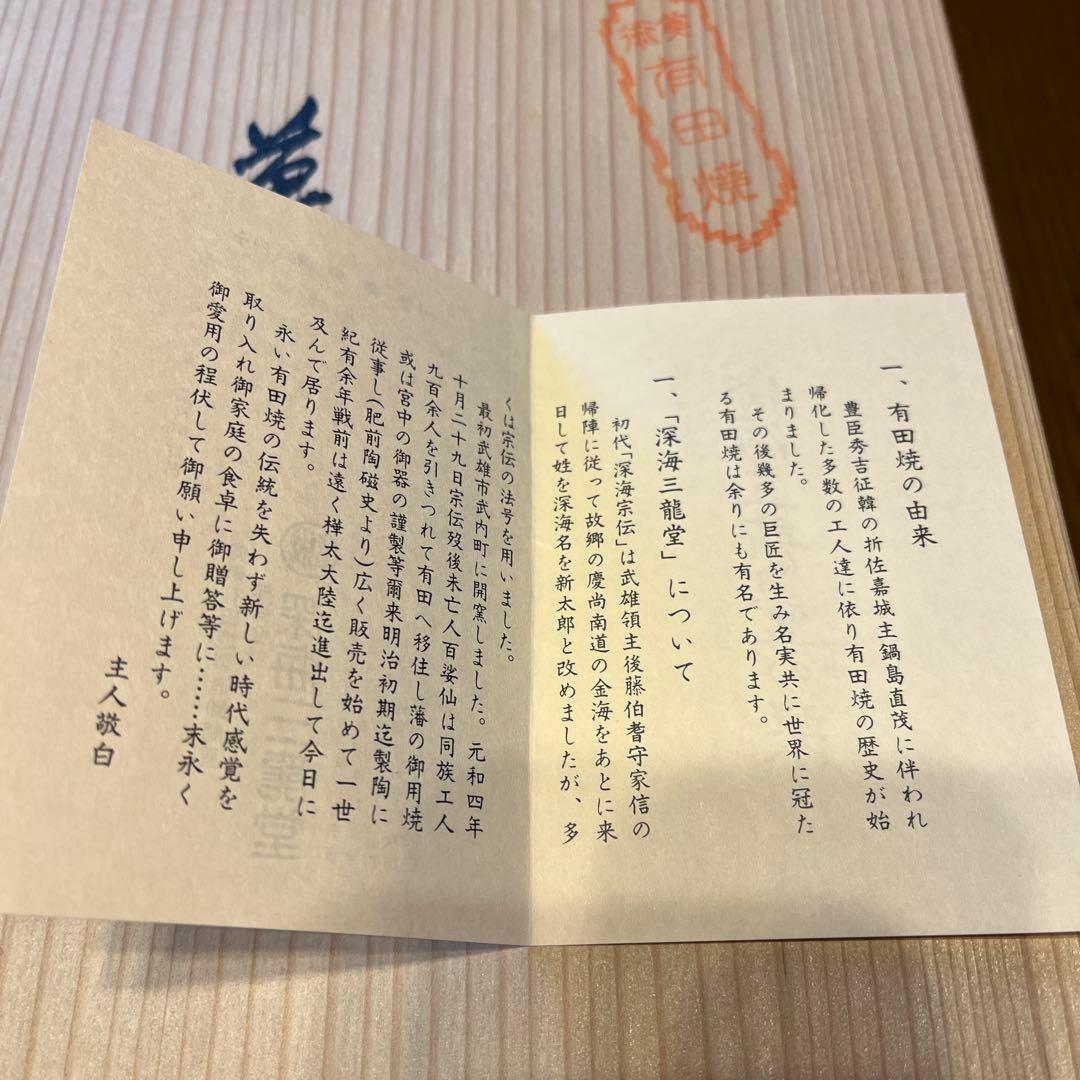 有田焼
一、有田焼の由来
豊臣秀吉征韓の折佐嘉城主鍋島直茂に伴われ
帰化した多数の工人達に依り有田焼の歴史が始
まりました。
その後幾多の巨匠を生み名実共に世界に冠た
る有田焼は余りにも有名であります。
一、「深海三龍堂」について
初代「深海宗伝」は武雄領主後藤伯耆守家信の
帰陣に従って故郷の慶尚南道の金海をあとに来
日して姓を深海名を新太郎と改めましたが、多
くは宗伝の法号を用いました。
最初武雄市武内町に開窯しました。元和四年
十月二十九日宗伝歿後未亡人百娑仙は同族工人
九百余人を引きつれて有田へ移住し藩の御用焼
或は宮中の御器の謹製等爾来明治初期迄製陶に
従事し(肥前陶磁史より)広く販売を始めて一世
紀有余年戦前は遠く樺太大陸迄進出して今日に
及んで居ります。
永い有田焼の伝統を失わず新しい時代感覚を
取り入れ御家庭の食卓に御贈答等に……末永く
御愛用の程伏して御願い申し上げます。
主人敬白